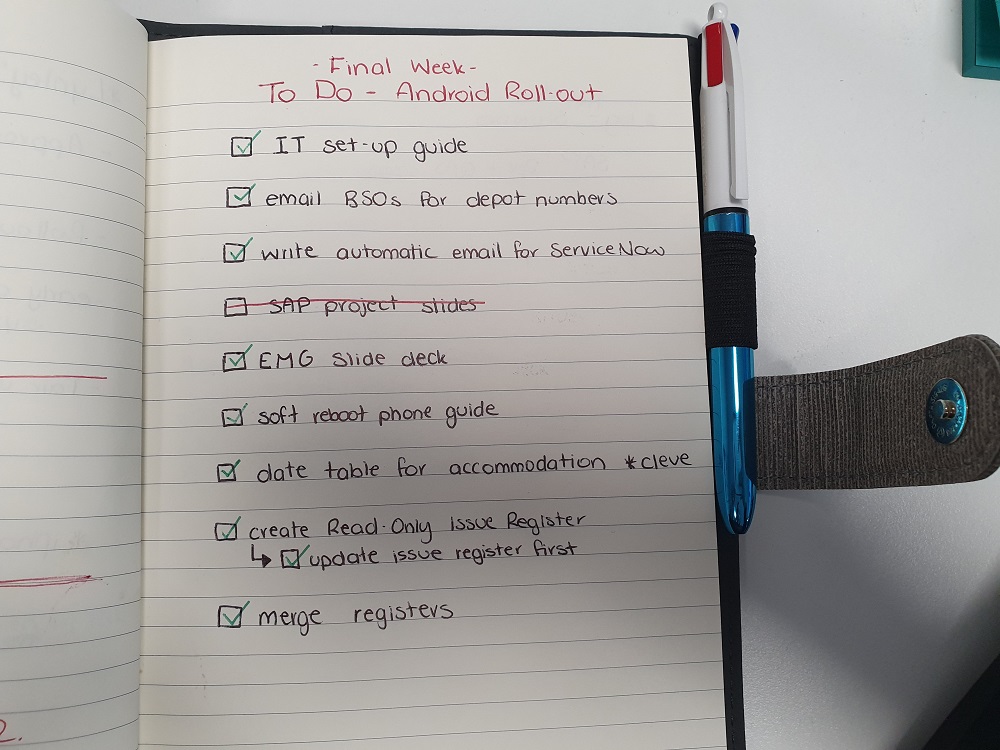 - Final Week -
To Do - Android Roll-out
IT set-up guide
email BSOs for depot numbers
write automatic email for ServiceNow
SAP project slides
EMG Slide deck
soft reboot phone guide
date table for accommodation *cleve
create Read-Only Issue Register
↳ update issue register first
merge registers
2.